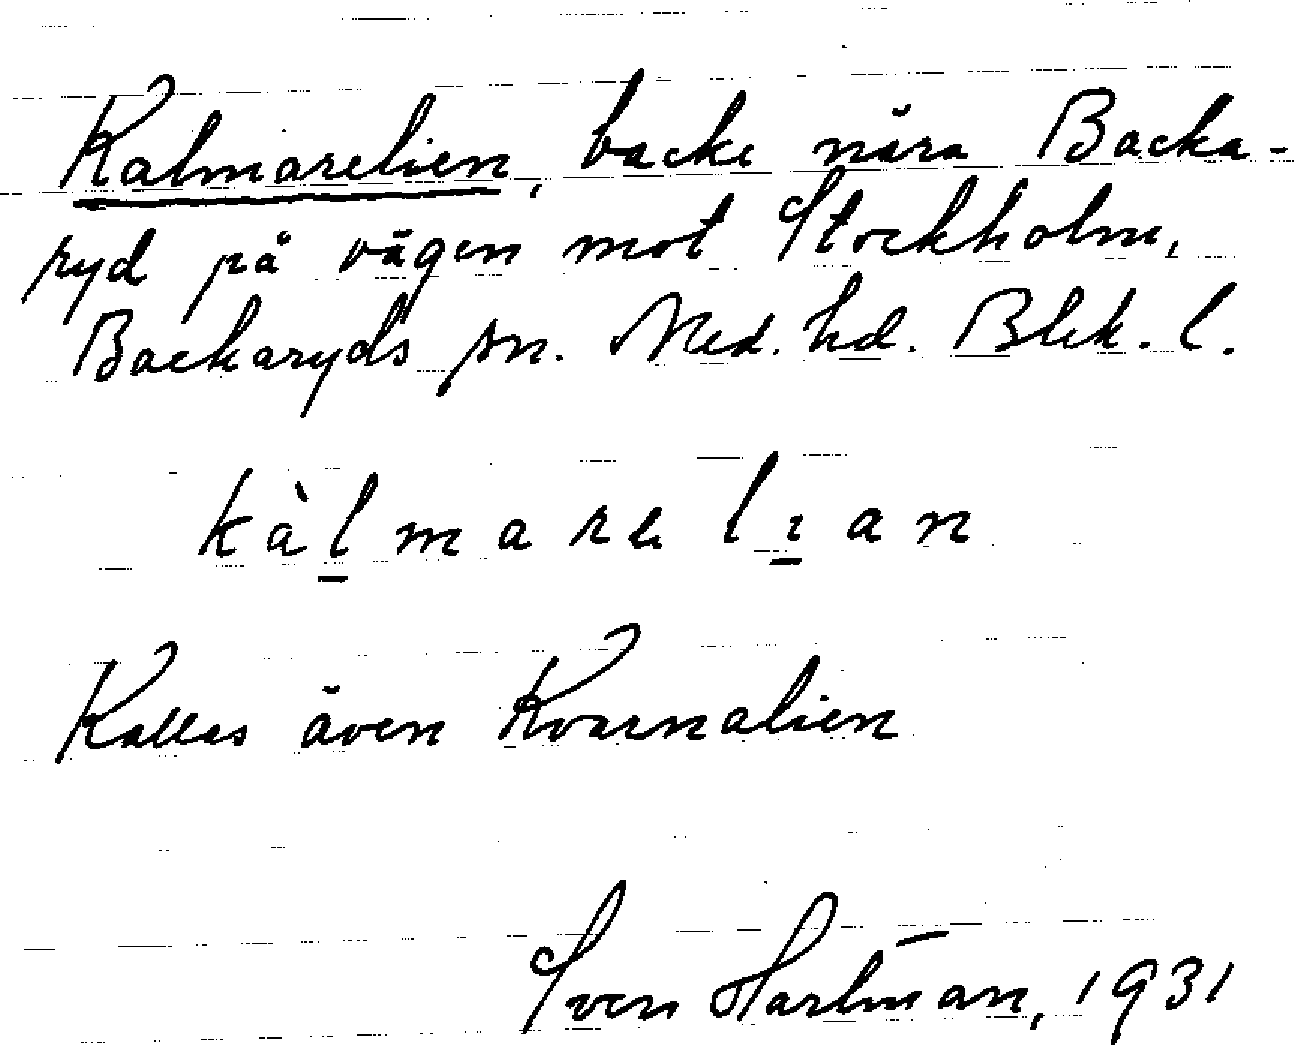 Kalmarelien, backe nära Backa-
ryd på vägen mot Stockholm,
Backaryds sn. Med. hd. Blek. l.
kàlmarelıan
Kallas även Kvarnalien
Sven Hartman, 1931